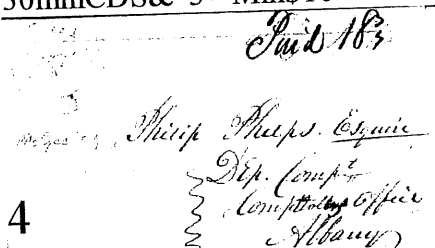 Paid 18¾
Philip Phelps. Esquire
Dep. Compt
Comptrollers Office
Albany
4